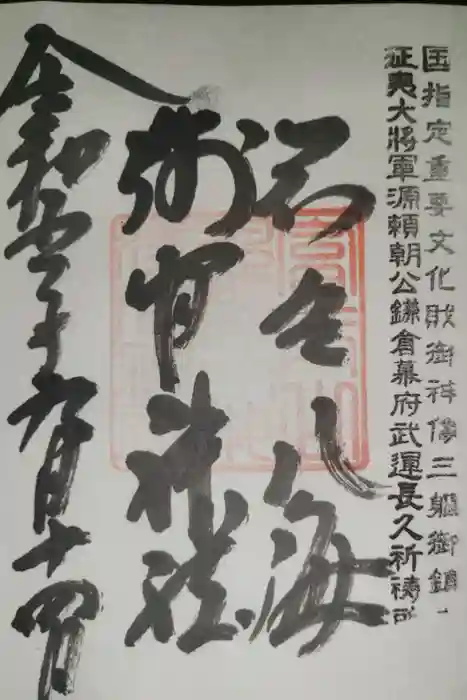 国指定重要文化財御神像三躯御鎮
征夷大將軍源頼朝公鎌倉幕府武運長久祈祷所
忍野八海
淺間神社
令和年九月十四日